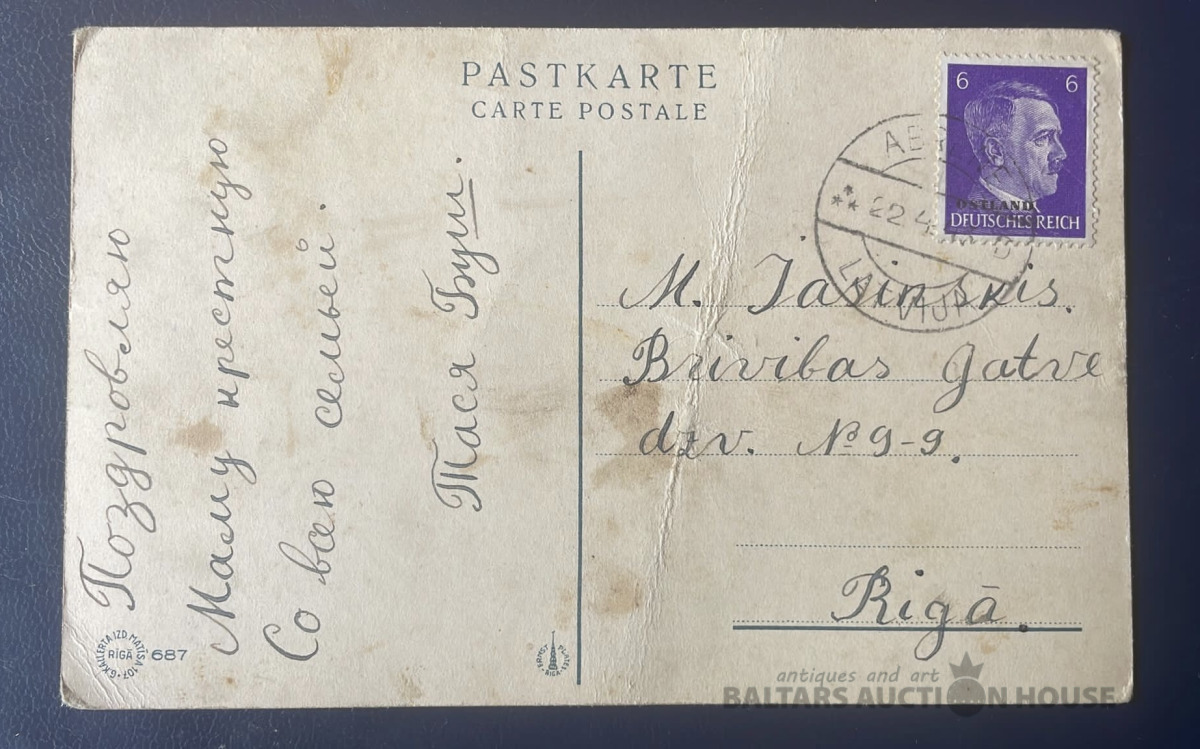 PASTKARTE
CARTE POSTALE
Поздровляю
Маму крестную
Со всею семьей.
Тася Буш.
6 6
OSTLAND
DEUTSCHES REICH
22 4
LATVIJA
M. Jasinskis.
Brivibas gatve
dzv. № 9-9.
Rigā.
G. KAILERTA IZD. MATISA 107
RĪGĀ
687
ERNST PLATES RIGA
antiques and art
BALTARS AUCTION HOUSE